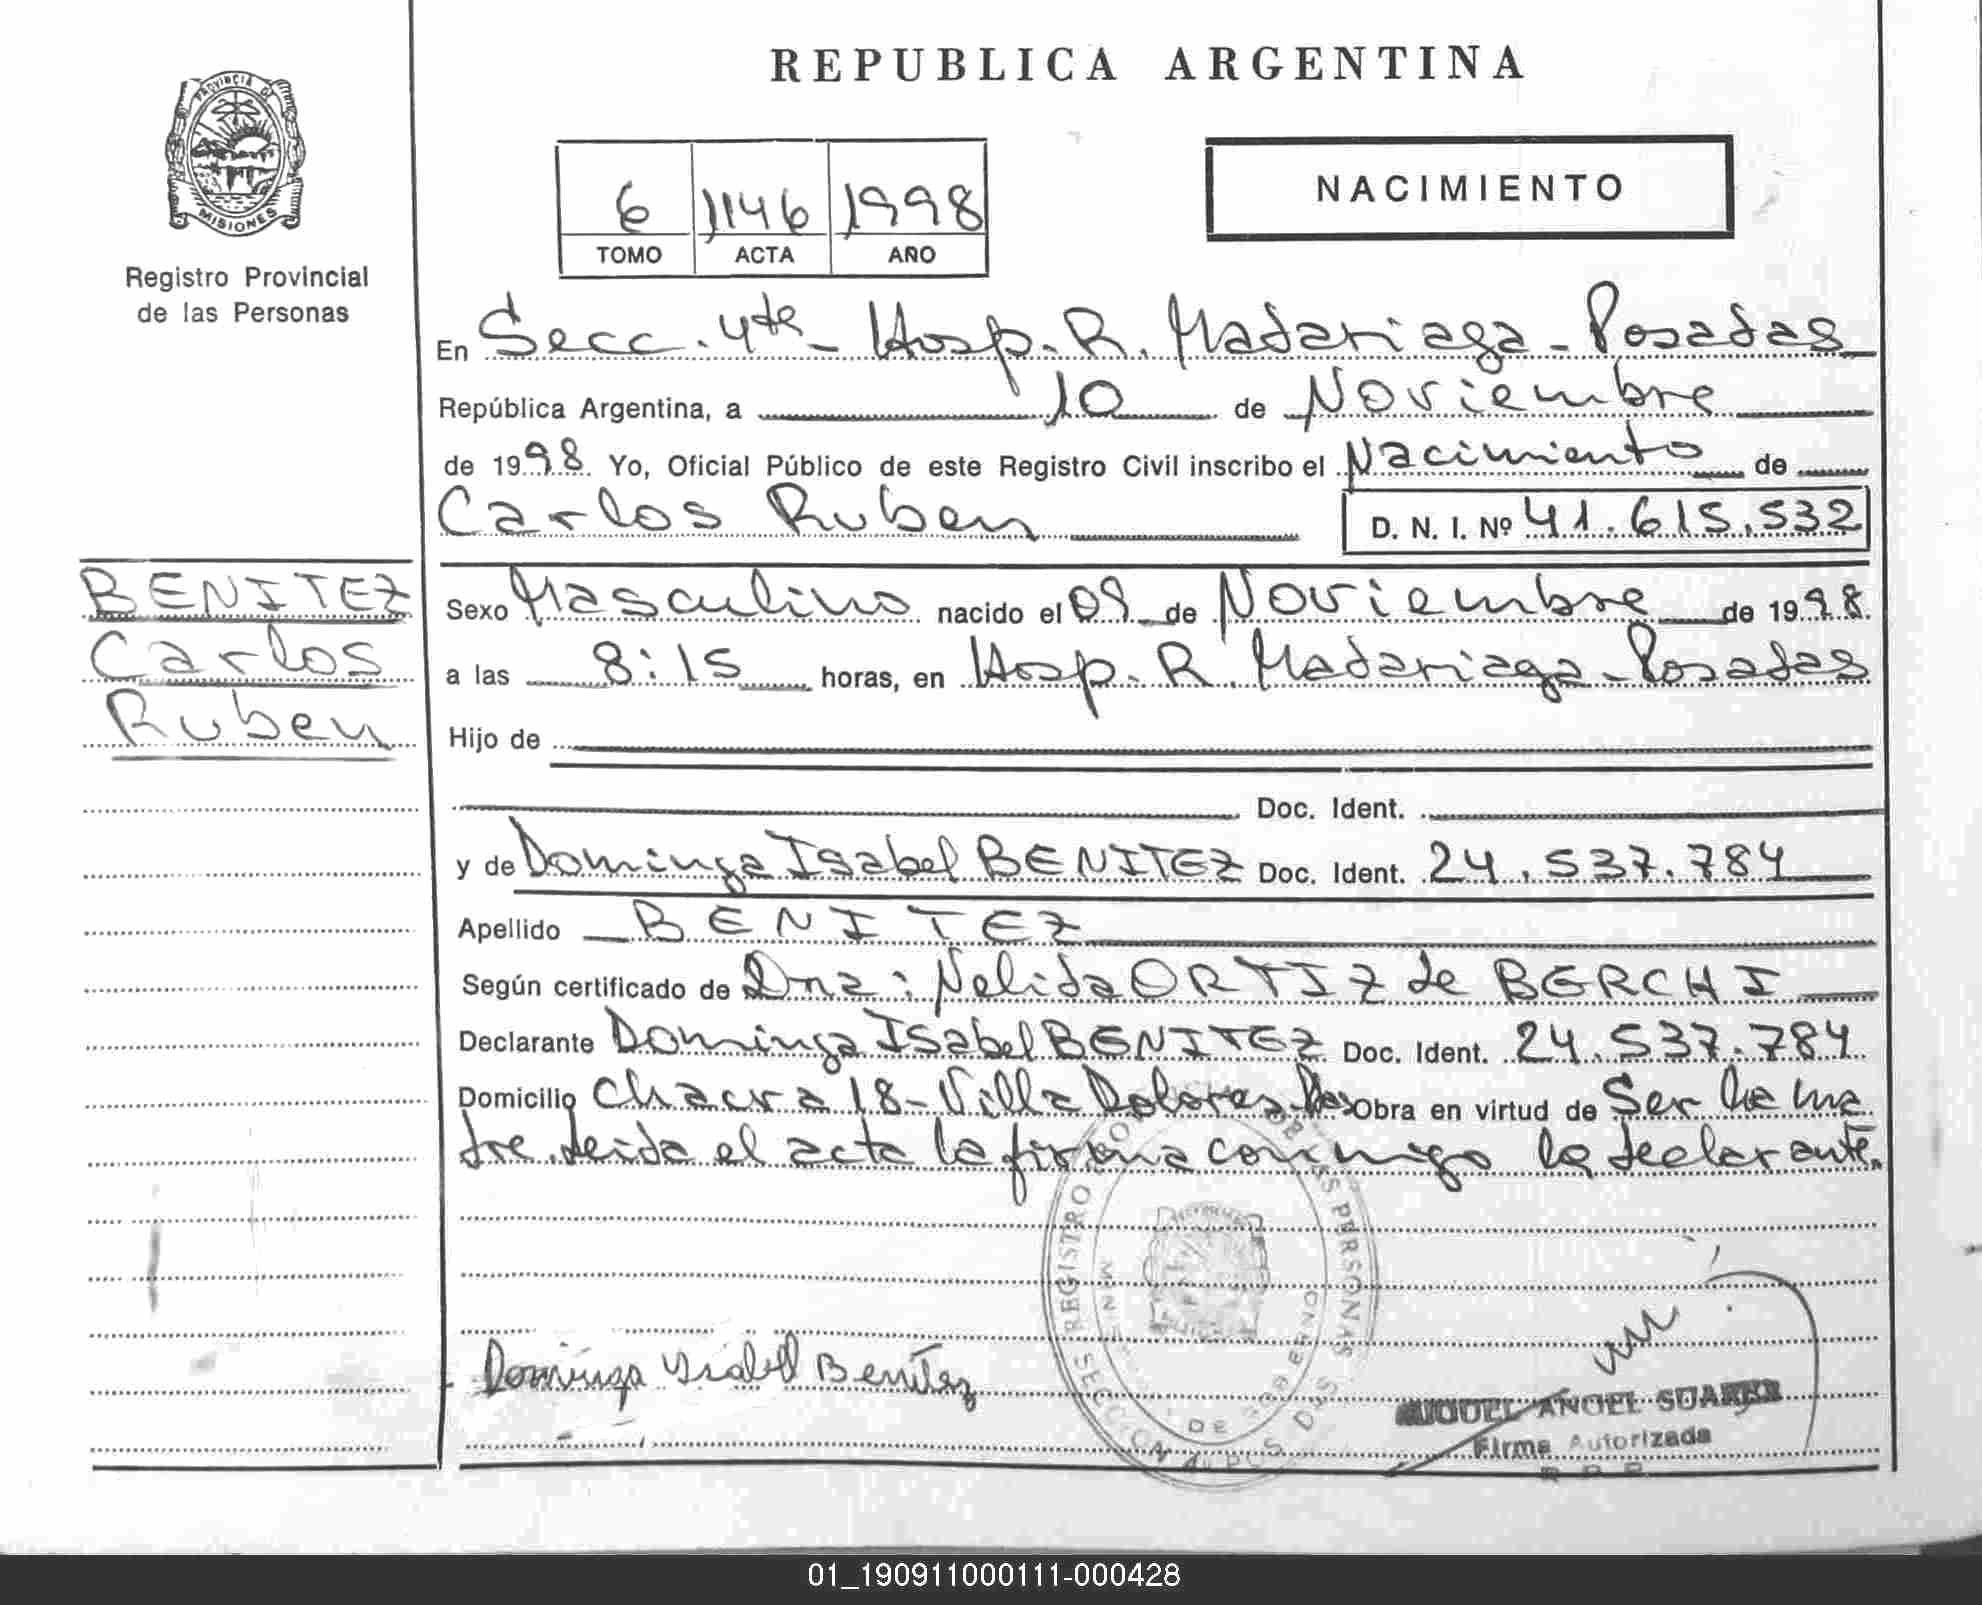 REPUBLICA ARGENTINA
PROVINCIA DE
MISIONES
Registro Provincial
de las Personas
6 1146 1998
TOMO ACTA AÑO
NACIMIENTO
En Secc. 4ta - Hosp. R. Madariaga - Posadas
República Argentina, a 10 de Noviembre
de 1998. Yo, Oficial Público de este Registro Civil inscribo el Nacimiento de
Carlos Ruben D. N. I. Nº 41.615.532
BENITEZ
Carlos
Ruben
Sexo Masculino nacido el 09 de Noviembre de 1998.
a las 8:15 horas, en Hosp. R. Madariaga - Posadas
Hijo de
Doc. Ident.
y de Dominga Isabel BENITEZ Doc. Ident. 24.537.784
Apellido BENITEZ
Según certificado de Dra: Nelida ORTIZ de BERCHI
Declarante Dominga Isabel BENITEZ Doc. Ident. 24.537.784
Domicilio Chacra 18 - Villa Dolores - Obra en virtud de Ser la ma
dre. Leida el acta la firma conmigo la declarante.
REGISTRO DE LAS PERSONAS
DE GOBIERNO
SECCION
Dominga Ysabel Benitez
MIGUEL ANGEL SUAREZ
Firma Autorizada
01_190911000111-000428